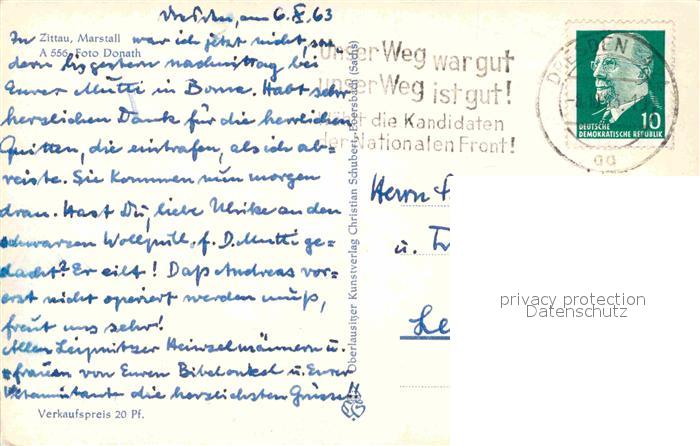 Dresden, am 6. X. 63
Zittau, Marstall
A 556, Foto Donath
In war ich jetzt nicht, son=
dern bis gestern nachmittag bei
Eurer Mutti in Borna. Habt sehr
herzlichen Dank für die herrlichen
Quitten, die eintrafen, als ich ab-
reiste. Sie kommen nun morgen
dran. Hast Du, liebe Ulrike an den
schwarzen Wollpull. f. D. Mutti ge=
dacht? Er eilt! Daß Andreas vor-
erst nicht operiert werden muß,
freut uns sehr!
Allen Leipnitzer Heinzelmännern u.
=frauen von Euren Bibelonkel u. Eurer
die herzlichsten Grüsse!!
Verkaufspreis 20 Pf.
Oberlausitzer Kunstverlag Christian Schubert, Ebersbach (Sachs)
unser Weg war gut
unser Weg ist gut!
die Kandidaten
der Nationalen Front!
DRESDEN
10
DEUTSCHE
DEMOKRATISCHE REPUBLIK
Herrn
u.
privacy protection
Datenschutz